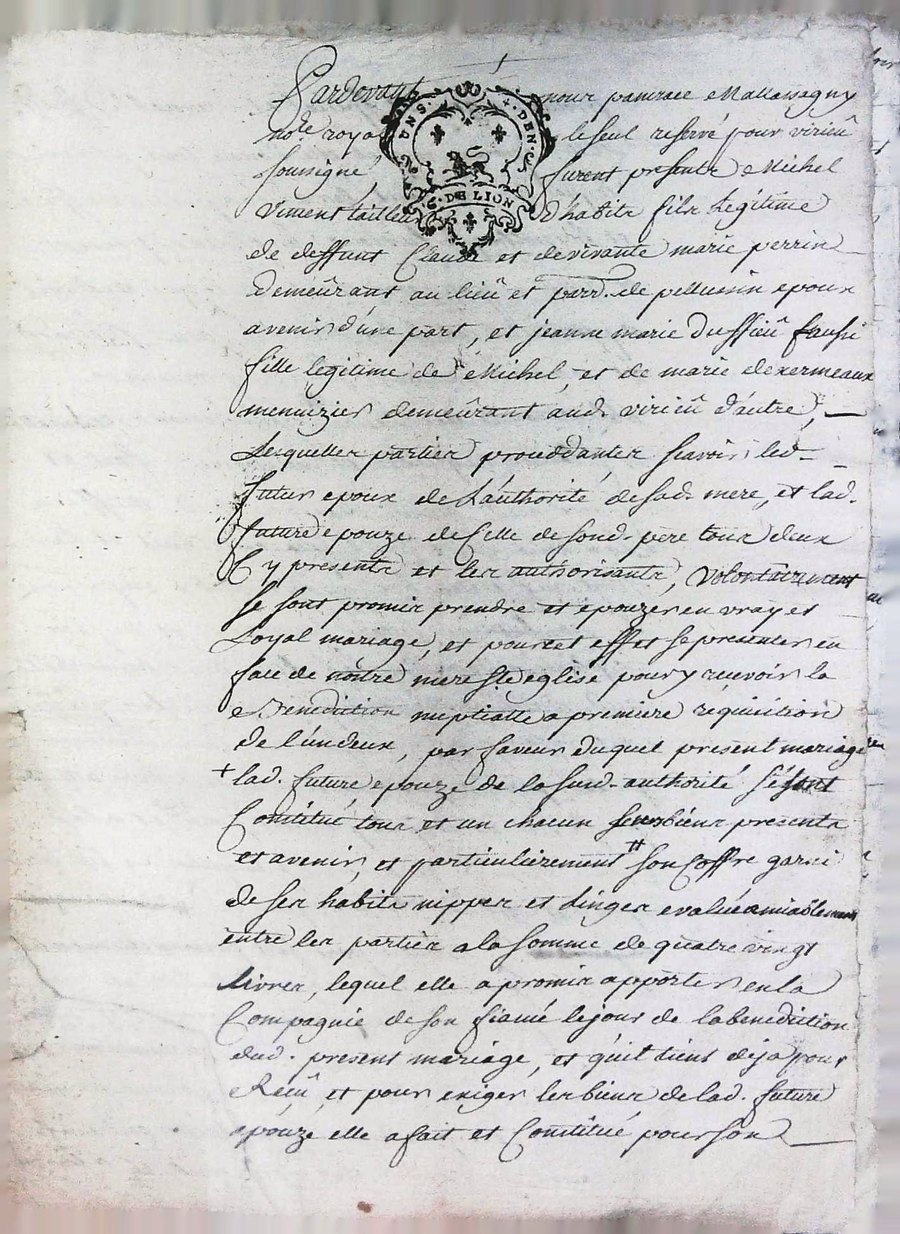 Pardevant nous pancrace Mallassagny
no.re royal le seul reservé pour virieû
soussigné furent presents Michel
Viment tailleur d'habits fils Legitime
de deffunt Claude et devivante marie perrin
demeûrant au lieû et parr. de pellussin epoux
avenir d'une part, et jeanne marie Dussieû
fille legitime de Michel, et de marie
menuizier demeûrant aud. virieû d'autre,
Lesquelles parties proceddantes scavoir led.
futur epoux de L'authorité de sad. mere, et lad.
future epouze de Celle de sond. pere tous deux
Cy presents et les authorisants, Volontairement
se sont promis prendre et epouzer en vray et
Loyal mariage, et pour cet effet se presenter en
face de nôtre mere Ste eglise pour y recevoir la
Benediction nuptialle a premiere requisition
de l'un deux, par faveur duquel present mariage
+ lad. future epouze de la susd. authorité s'est
Constitué tous et un chacun ses biens presents
et avenir, et particulierement # son Coffre garni
de ses habits nippes et linges evalué amiablement
entre les parties a la somme de quatre vingt
Livres, lequel elle a promis apporter en la
Compagnie de son fiancé le jour de la benediction
dud. present mariage, et qu'il tient deja pour
Receû, et pour exiger les biens de lad. future
epouze elle a fait et Constitué pour son
UNS. DEN.
G. DE LION